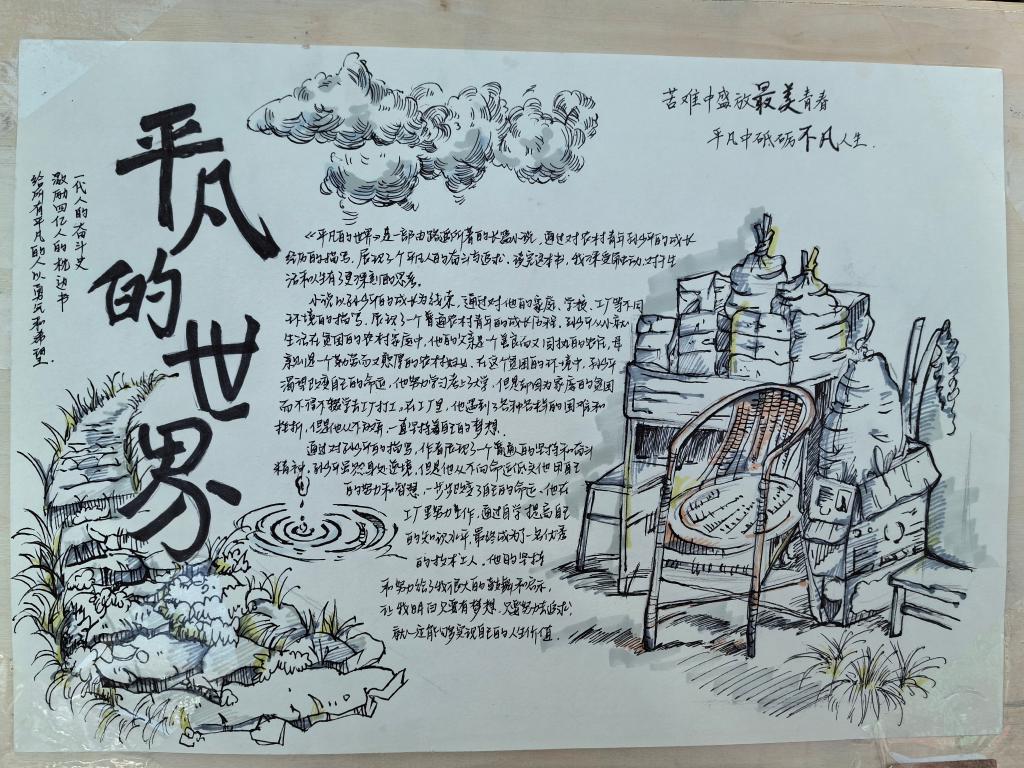 平凡的世界
一代人的奋斗史
激励四亿人的枕边书
给所有平凡的人以勇气和希望.
苦难中盛放最美青春
平凡中砥砺不凡人生.
《平凡的世界》是一部由路遥所著的长篇小说，通过对农村青年孙少平的成长
经历的描写，展现了平凡人的奋斗与追求。读完这本书，我深受触动，对于生
活和人生有了更深刻的思考。
小说以孙少平的成长为线索，通过对他的家庭、学校、工厂等不同
环境的描写，展现了一个普通农村青年的成长历程，孙少平从小就
生活在贫困的农村家庭中，他的父亲是一个善良而又固执的农民，母
亲则是一个勤劳而又憨厚的农村妇女，在这个贫困的环境中，孙少平
渴望改变自己的命运，他努力学习考上大学，但是却因为家庭的贫困
而不得不辍学去工厂打工。在工厂里，他遇到了各种各样的困难和
挫折，但是他从不放弃，一直坚持着自己的梦想.
通过对孙少平的描写，作者展现了一个普通人的坚持和奋斗
精神，孙少平虽然身处逆境，但是他从不向命运低头他用自己
的努力和智慧，一步步改变了自己的命运、他在
工厂里努力工作，通过自学提高自己
的知识水平，最终成为了一名优秀
的技术工人，他的坚持
和努力给了我很大的鼓舞和启示，
让我明白只要有梦想，只要努力去追求，
就一定能够实现自己的人生价值.